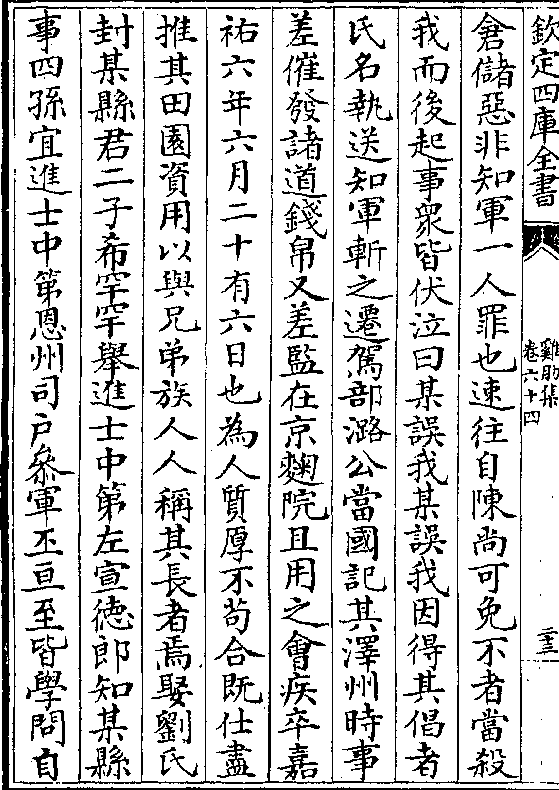 欽定四庫全書
雞肋集
卷六十四
倉儲惡非知軍一人罪也速往自陳尚可免不者當殺
我而後起事衆皆伏泣曰某誤我某誤我因得其倡者
氏名執送知軍斬之遷駕部潞公當國記其澤州時事
差催發諸道錢帛又差監在京麴院且用之會疾卒嘉
祐六年六月二十有六日也為人質厚不苟合既仕盡
推其田園資用以與兄弟族人人稱其長者焉娶劉氏
封某縣君二子希罕罕舉進士中第左宣徳郎知某縣
事四孫宜進士中第恩州司戸叅軍丕亘至皆學問自